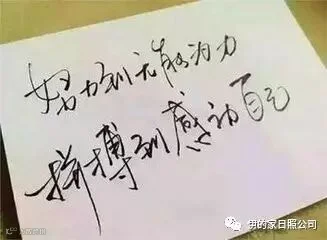 努力到无能为力
拼搏到感动自己
伊的家日照公司